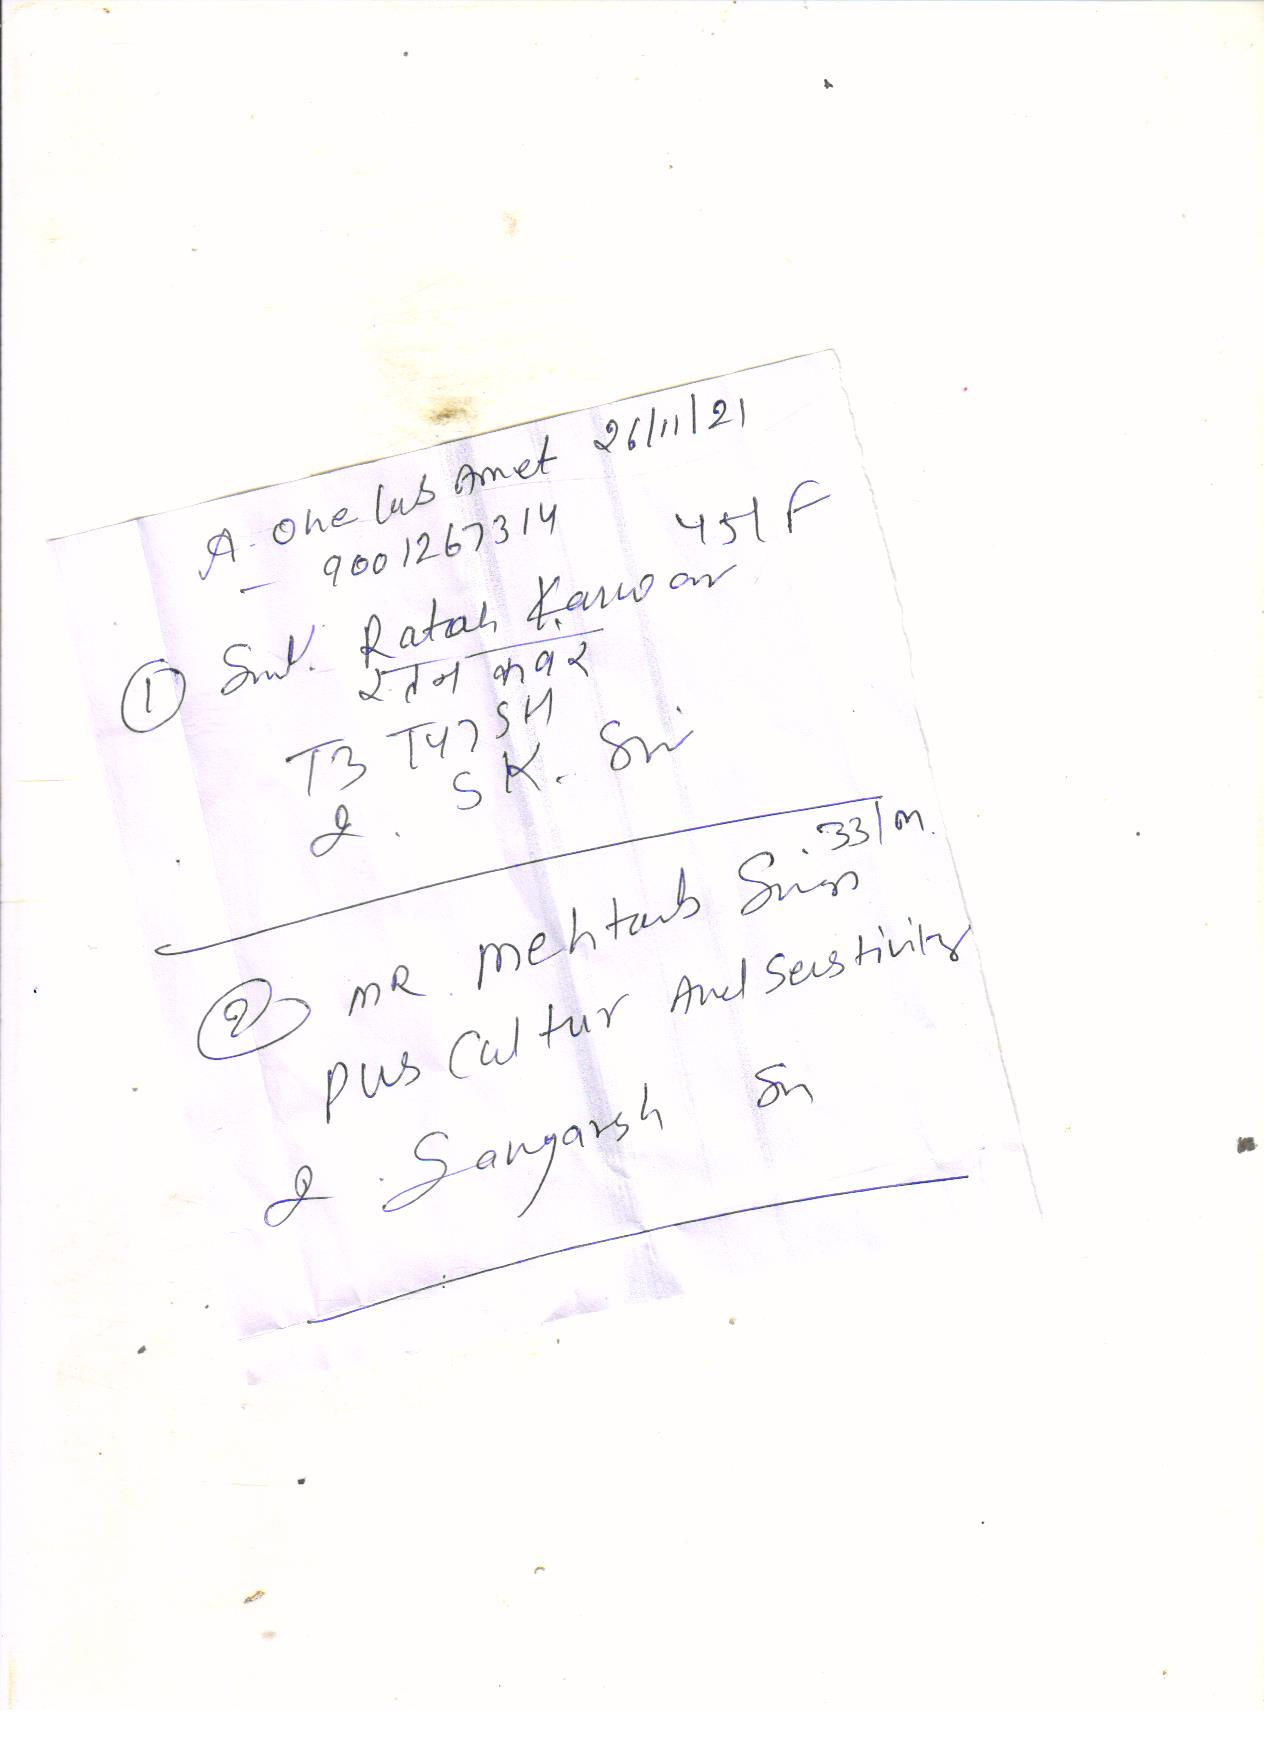 A. One Lab Amet 26/11/21
9001267314
45/F
① Smt. Ratan Kanwar
रतन कवर
T3 T4 TSH
SK. Sir
33/M.
② MR. Mehtab Singh
Pus Caltur And Senstivity
Sangarsh Sir